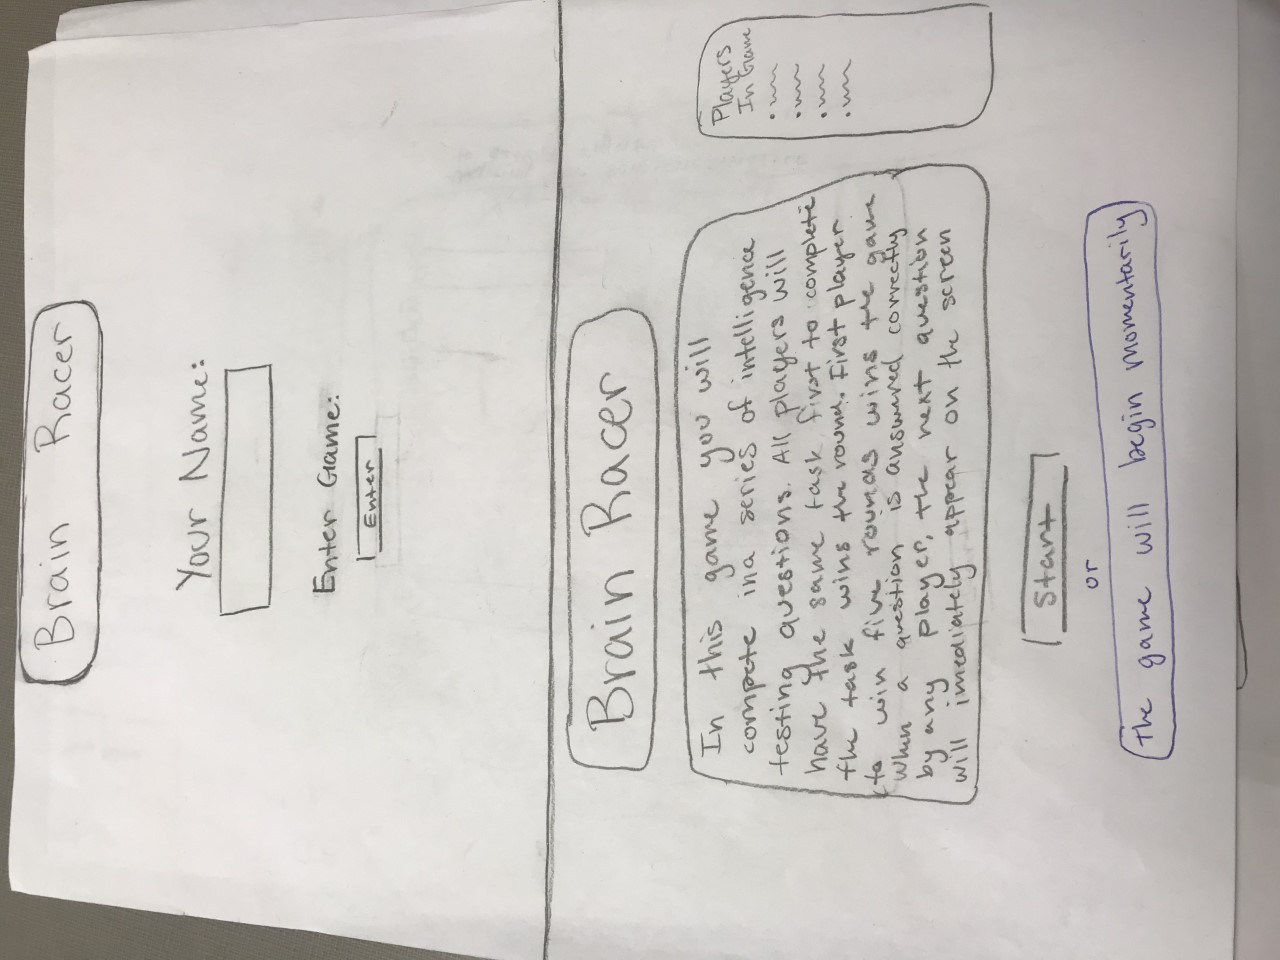 Brain Racer
Your Name:
Enter Game:
Enter
Brain Racer
In this game you will
compete in a series of intelligence
testing questions. All players will
have the same task first to complete
the task wins the round. First player
to win five rounds wins the game
When a question is answered correctly
by any player, the next question
will imediately appear on the screen
Players
In Game
Start
or
The game will begin momentarily